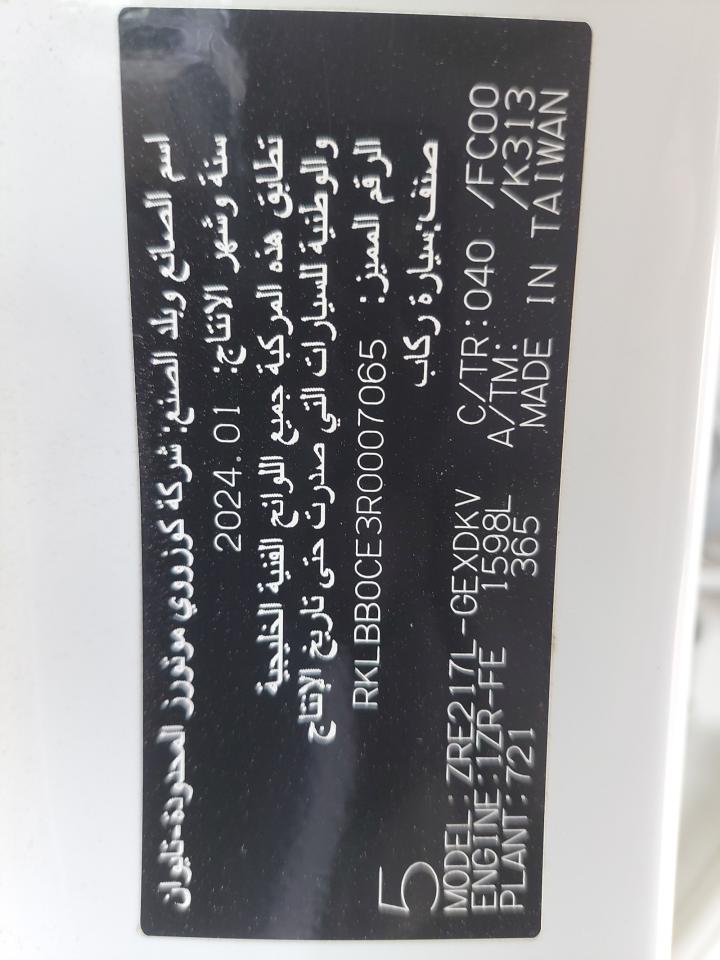 اسم الصانع وبلد الصنع: شركة كوزووي موتورز المحدودة-تايوان
سنة وشهر الانتاج: 2024.01
تطابق هذه المركبة جميع اللوائح الفنية الخليجية
والوطنية للسيارات التي صدرت حتى تاريخ الإنتاج
الرقم المميز: RKLBB0CE3R0007065
صنف:سيارة ركاب
5
MODEL:ZRE217L-GEXDKV C/TR:040 /FC00
ENGINE:1ZR-FE 1598L A/TM: /K313
PLANT:721 365 MADE IN TAIWAN